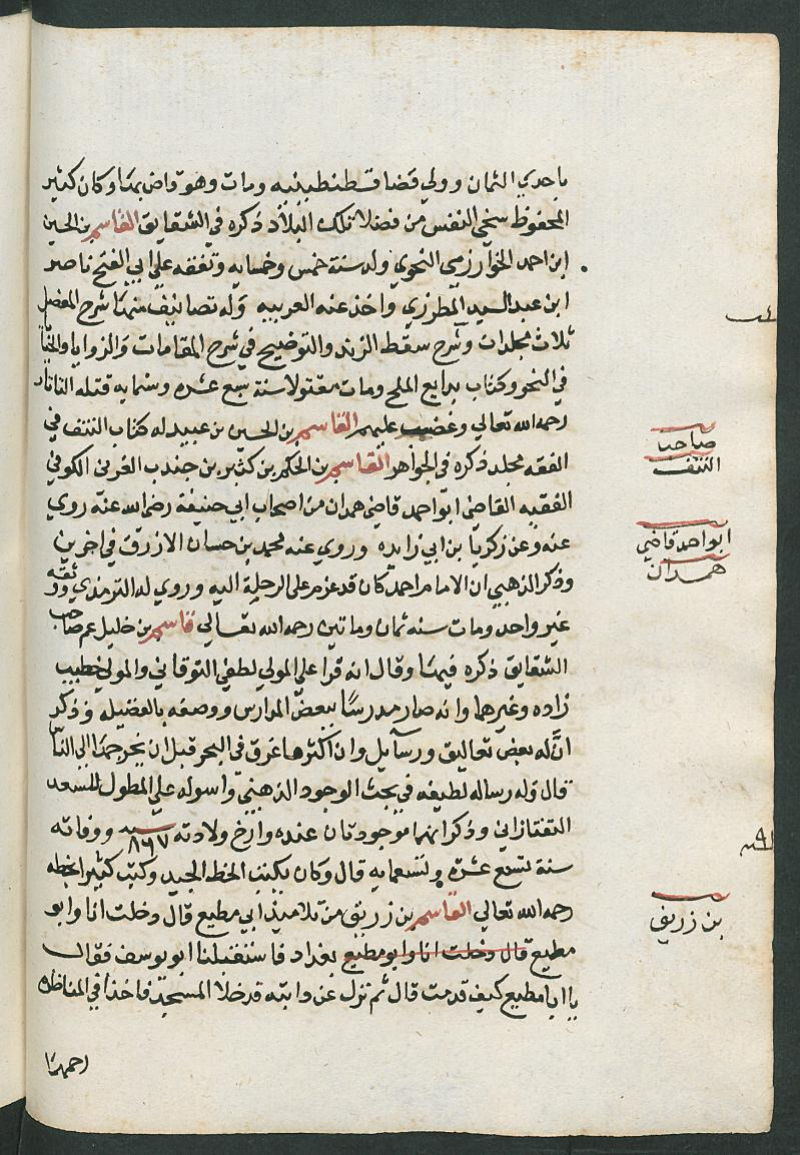 باحدي الثمان وولي قضا قسطنطينيه ومات وهو قاض بها وكان كثير
المحفوظ سخي النفس من فضلا تلك البلاد ذكره في الشقايق القاسم بن الحسين
ابن احمد الخوارزمي النحوي ولد سنة خمس وخمسايه وتفقه علي ابي الفتح ناصر
ابن عبد السيد المطرزي واخذ عنه العربيه وله تصانيف منها شرح المفصل
ثلاث مجلدات وشرح سقط الزند والتوضيح في شرح المقامات والزوايا والخبايا
في النحو وكتاب بدايع الملح ومات مقتولا سنة سبع عشره وستمايه قتله التاتار
رحمه الله تعالي وغضب عليهم القاسم بن الحسين بن عبيد له كتاب النتف في
الفقه مجلد ذكره في الجواهر القاسم بن الحكم بن كثير بن جندب العرني الكوفي
الفقيه القاضي ابو احمد قاضي همدان من اصحاب ابي حنيفة رضي الله عنه روي
عنه وعن زكريا بن ابي زايده وروي عنه محمد بن حسان الازرق في اخرين
وذكر الذهبي ان الامام احمد كان قد عزم علي الرحلة اليه وروي له الترمذي ووثقه
غير واحد ومات سنه ثمان وماتين رحمه الله تعالي قاسم بن خليل عم صاحب
الشقايق ذكره فيها وقال انه قرا علي المولي لطفي التوقاتي والمولي خطيب
زاده وغيرهما وانه صار مدرسا ببعض المدارس ووصفه بالفضيله وذكر
ان له بعض تعاليق ورسايل وان اكثرها غرق في البحر قبل ان يخرجها الي
قال وله رساله لطيفه في بحث الوجود الذهني واسوله علي المطول للسعد
التفتازاني وذكر انهما موجودتان عنده وارخ ولادته سنه ٨٦٧ ووفاته
سنة تسع عشره وتسعمايه قال وكان يكتب الخط الجيد وكتب كثيرا بخطه
رحمه الله تعالي القاسم بن زريق من تلاميذ ابي مطيع قال دخلت انا وابو
مطيع قال دخلت انا وابو مطيع بغداد فاستقبلنا ابو يوسف فقال
يا ابا مطيع كيف قدمت قال ثم نزل عن دابته فدخلا المسجد فاخذا في المناظره
صاحب
النتف
ابو احمد قاضي
همدان
بن زريق